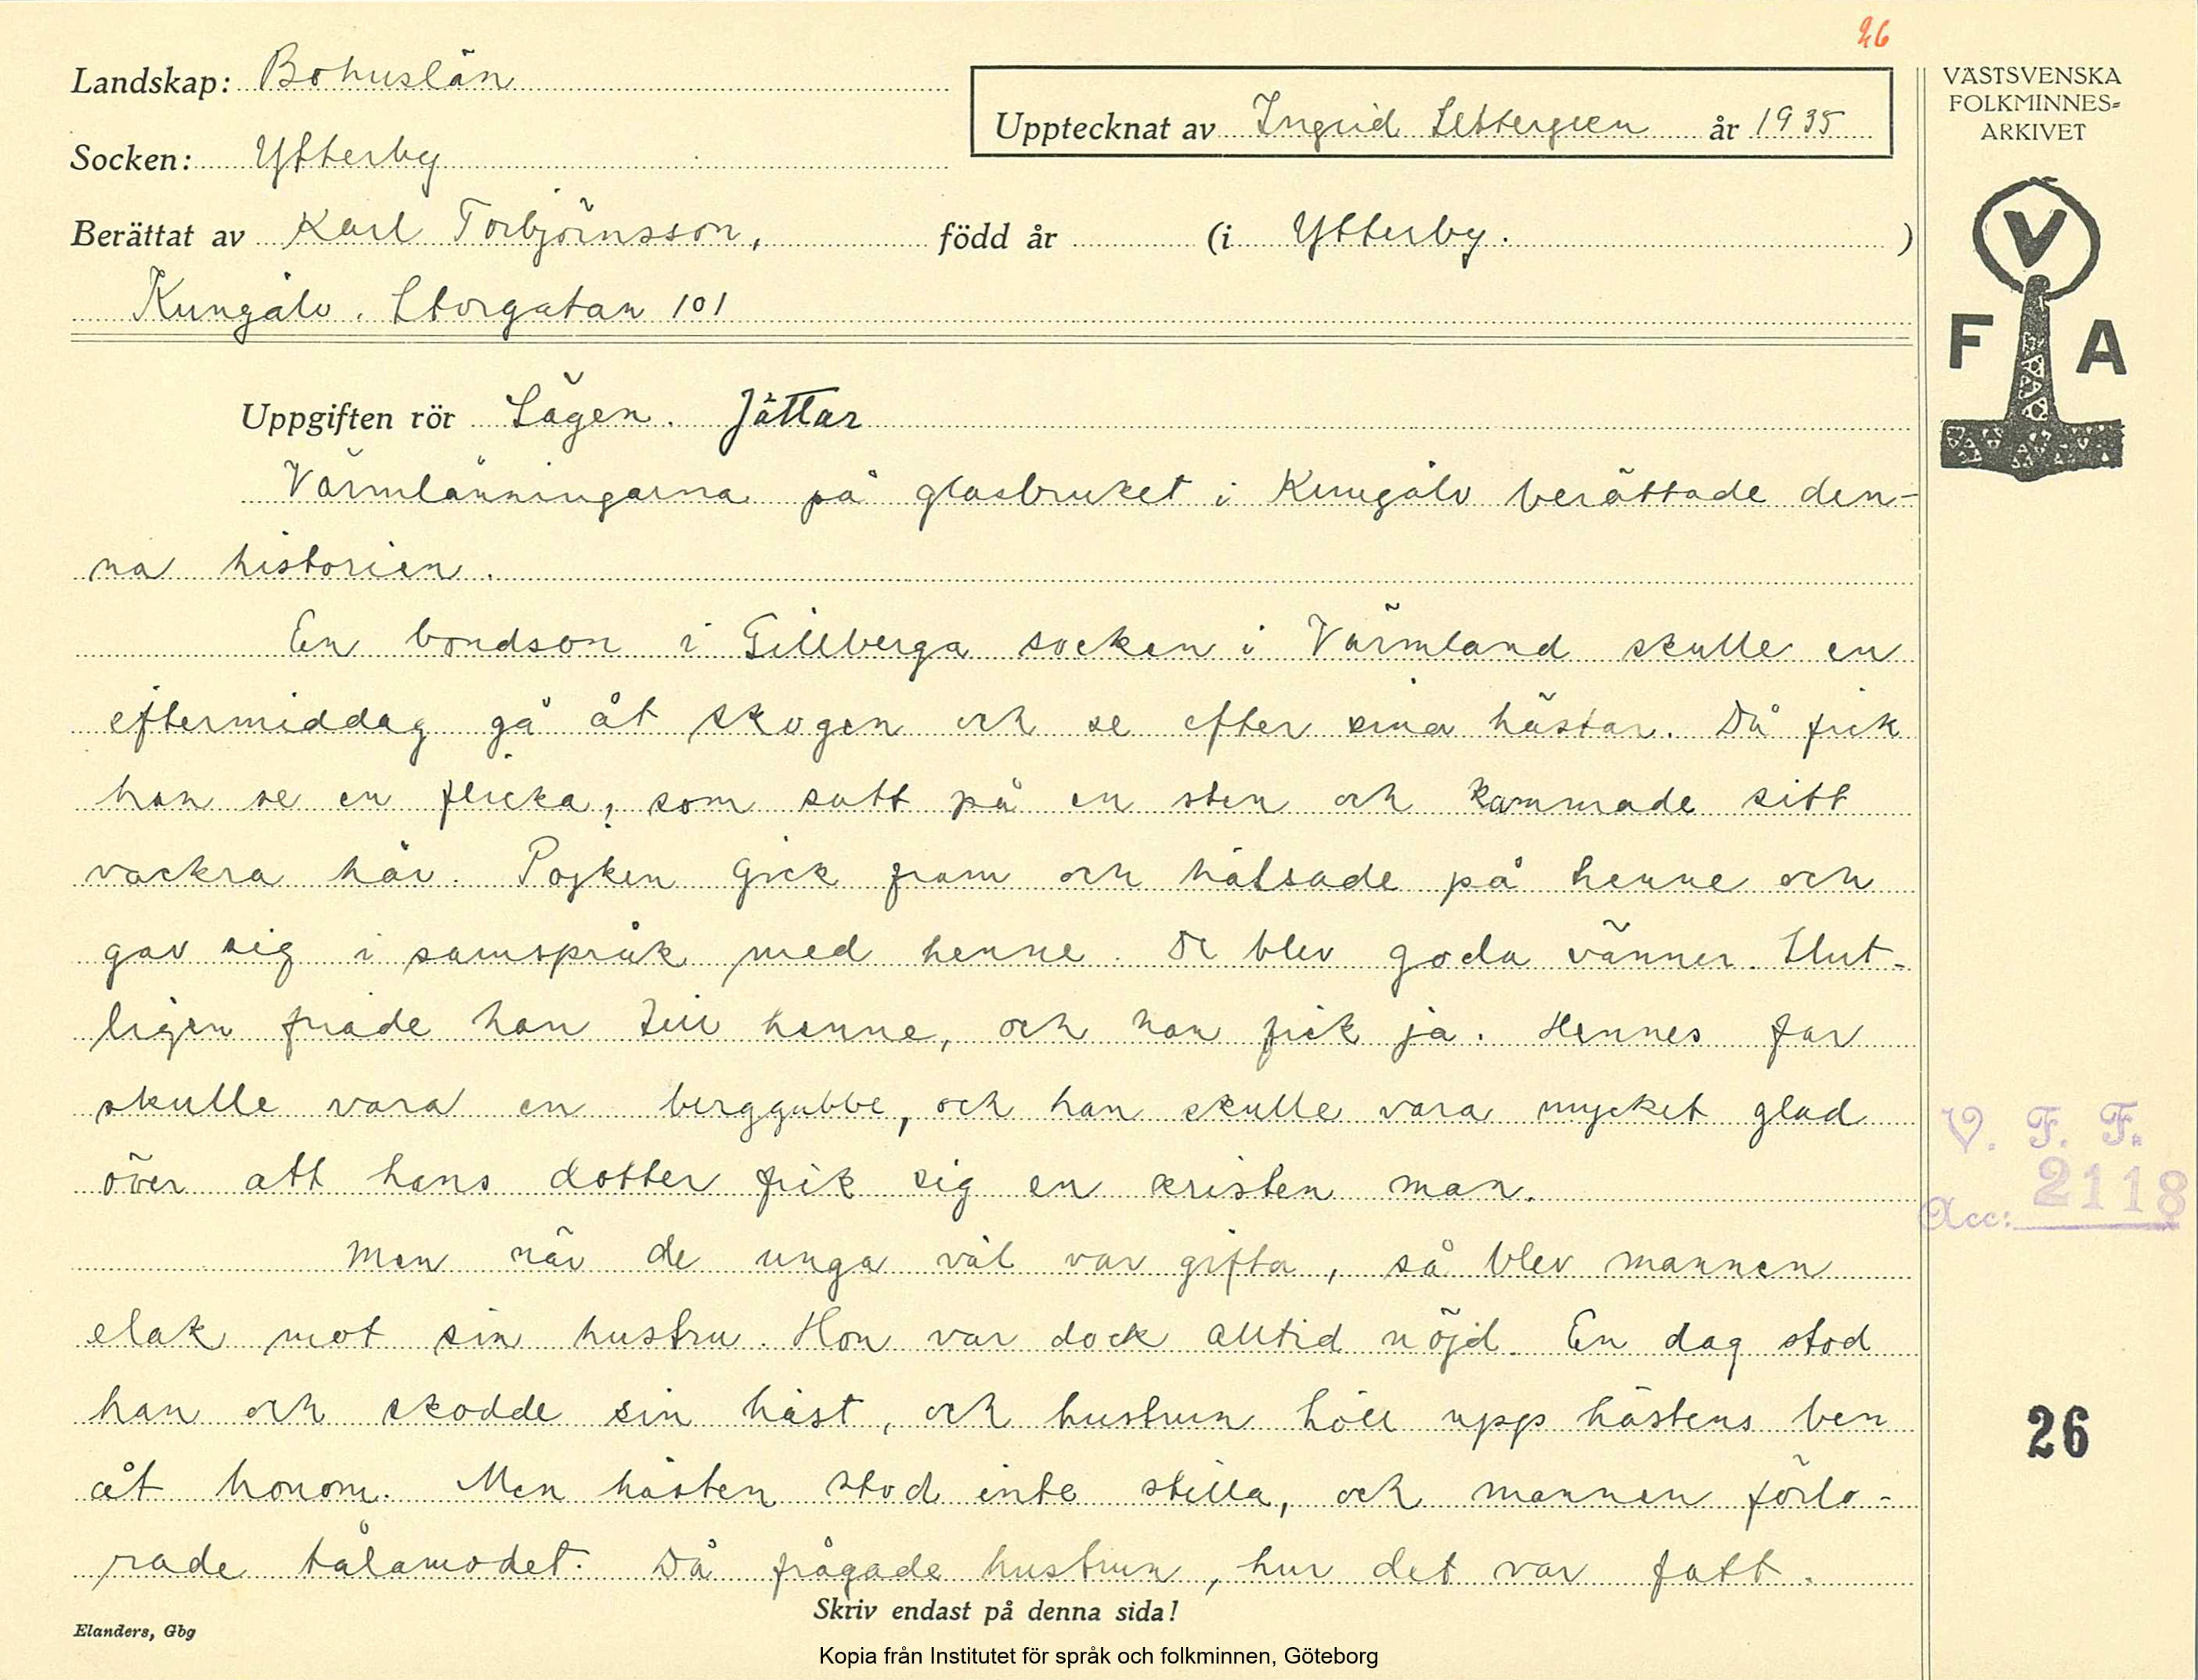 26
Landskap: Bohuslän
Socken: Ytterby
Upptecknat av Ingrid Settergren år 1935
Berättat av Karl Torbjörnsson, född år (i Ytterby. )
Kungälv. Storgatan 101
Uppgiften rör Sägen. Jättar
Värmlänningarna på glasbruket i Kungälv berättade den-
na historien.
En bondson i Gillberga socken i Värmland skulle en
eftermiddag gå åt skogen och se efter sina hästar. Då fick
han se en flicka, som satt på en sten och kammade sitt
vackra hår. Pojken gick fram och hälsade på henne och
gav sig i samspråk med henne. De blev goda vänner. Slut-
ligen friade han till henne, och han fick ja. Hennes far
skulle vara en berggubbe, och han skulle vara mycket glad
över att hans dotter fick sig en kristen man.
Men när de unga väl var gifta, så blev mannen
elak mot sin hustru. Hon var dock alltid nöjd. En dag stod
han och skodde sin häst, och hustrun höll upp hästens ben
åt honom. Men hästen stod inte stilla, och mannen förlo-
rade tålamodet. Då frågade hustrun, hur det var fatt.
Skriv endast på denna sida!
Elanders, Gbg
Kopia från Institutet för språk och folkminnen, Göteborg
VÄSTSVENSKA
FOLKMINNES-
ARKIVET
V
F A
V. F. F.
Acc: 2118
26